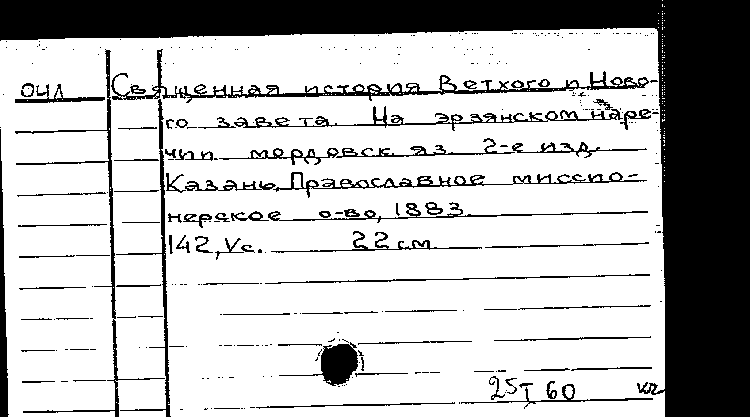 ОЧЛ Священная история Ветхого и Ново-
го завета. На эрзянском наре-
чии мордовск яз. 2-е изд.
Казань, Православное миссио-
нерское о-во, 1883.
142, Vс. 22 см
25 I 60